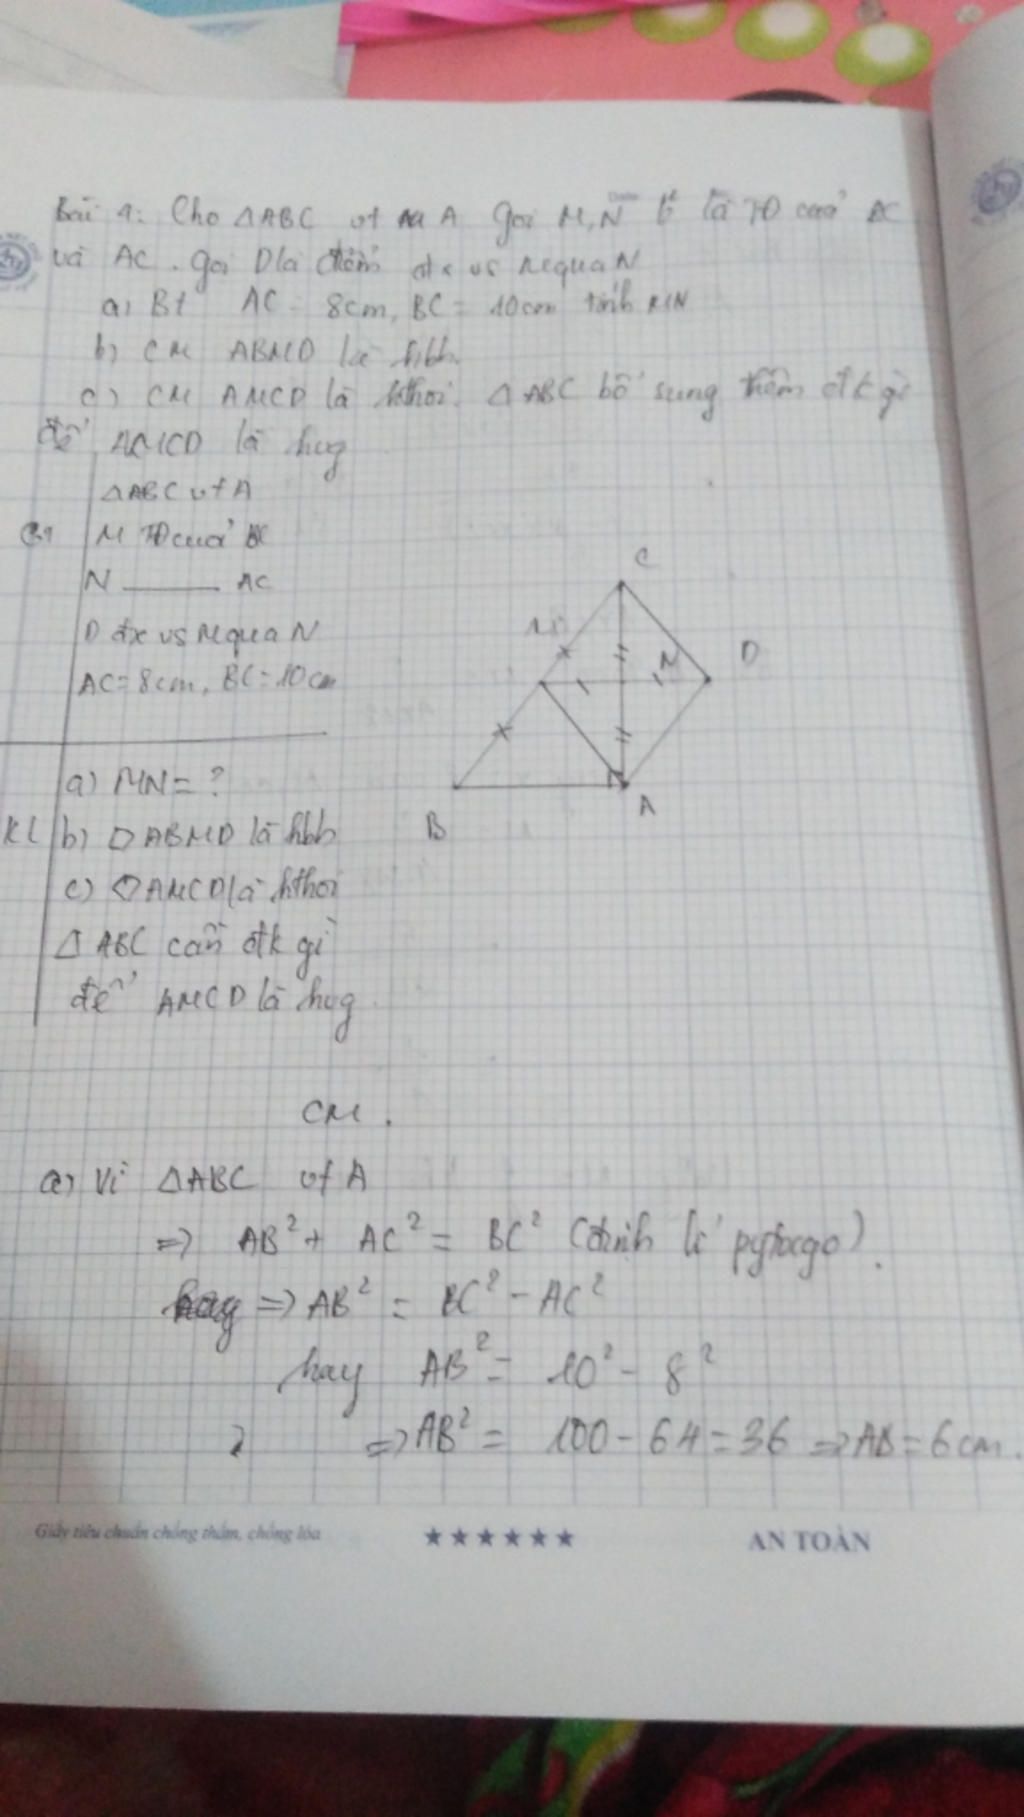 Bài 4: Cho △ABC vt tại A gọi M,N là TĐ của BC
và AC. gọi D là điểm đx vs M qua N
a) Bt AC = 8cm, BC = 10cm tính MN
b) CM ABMD là hbh.
c) CM AMCD là hthoi. △ABC bổ sung thêm đk gì
để AMCD là hvg
△ABC vt A
GT M TĐ của BC
N ——— AC
D đx vs M qua N
AC = 8cm, BC = 10cm
a) MN = ?
KL b) ▱ ABMD là hbh
c) ◇ AMCD là hthoi
△ ABC cần đk gì
để AMCD là hvg.
C
M
N
D
B
A
CM.
a) Vì △ABC vt A
=> AB² + AC² = BC² (định lí pytago).
=> AB² = BC² - AC²
hay AB² = 10² - 8²
=> AB² = 100 - 64 = 36 => AB = 6cm.
Giấy tiêu chuẩn chống thấm, chống lóa
★★★★★★
AN TOÀN